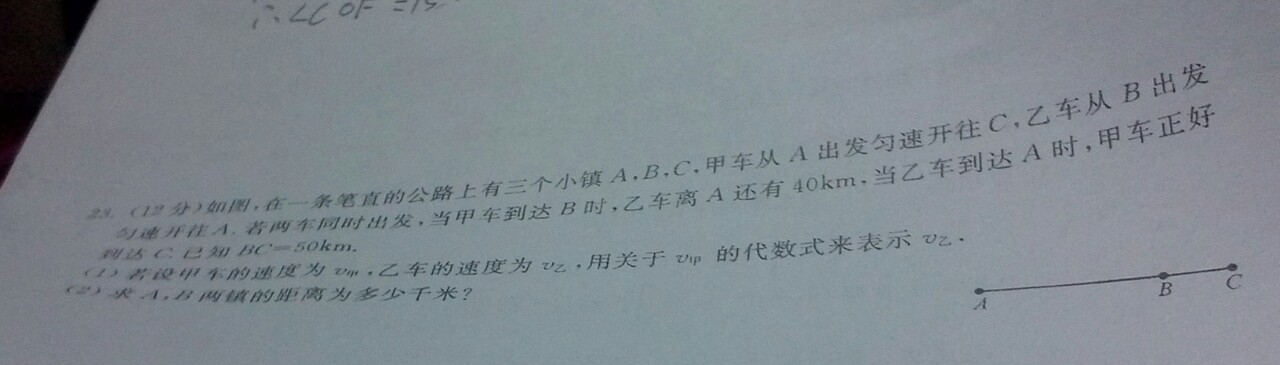 ∴∠COF=15
23.(12分)如图,在一条笔直的公路上有三个小镇A,B,C,甲车从A出发匀速开往C,乙车从B出发
匀速开往A.若两车同时出发,当甲车到达B时,乙车离A还有40km,当乙车到达A时,甲车正好
到达C.已知BC=50km.
(1)若设甲车的速度为v甲,乙车的速度为v乙,用关于v甲的代数式来表示v乙.
(2)求A,B两镇的距离为多少千米?
A
B
C